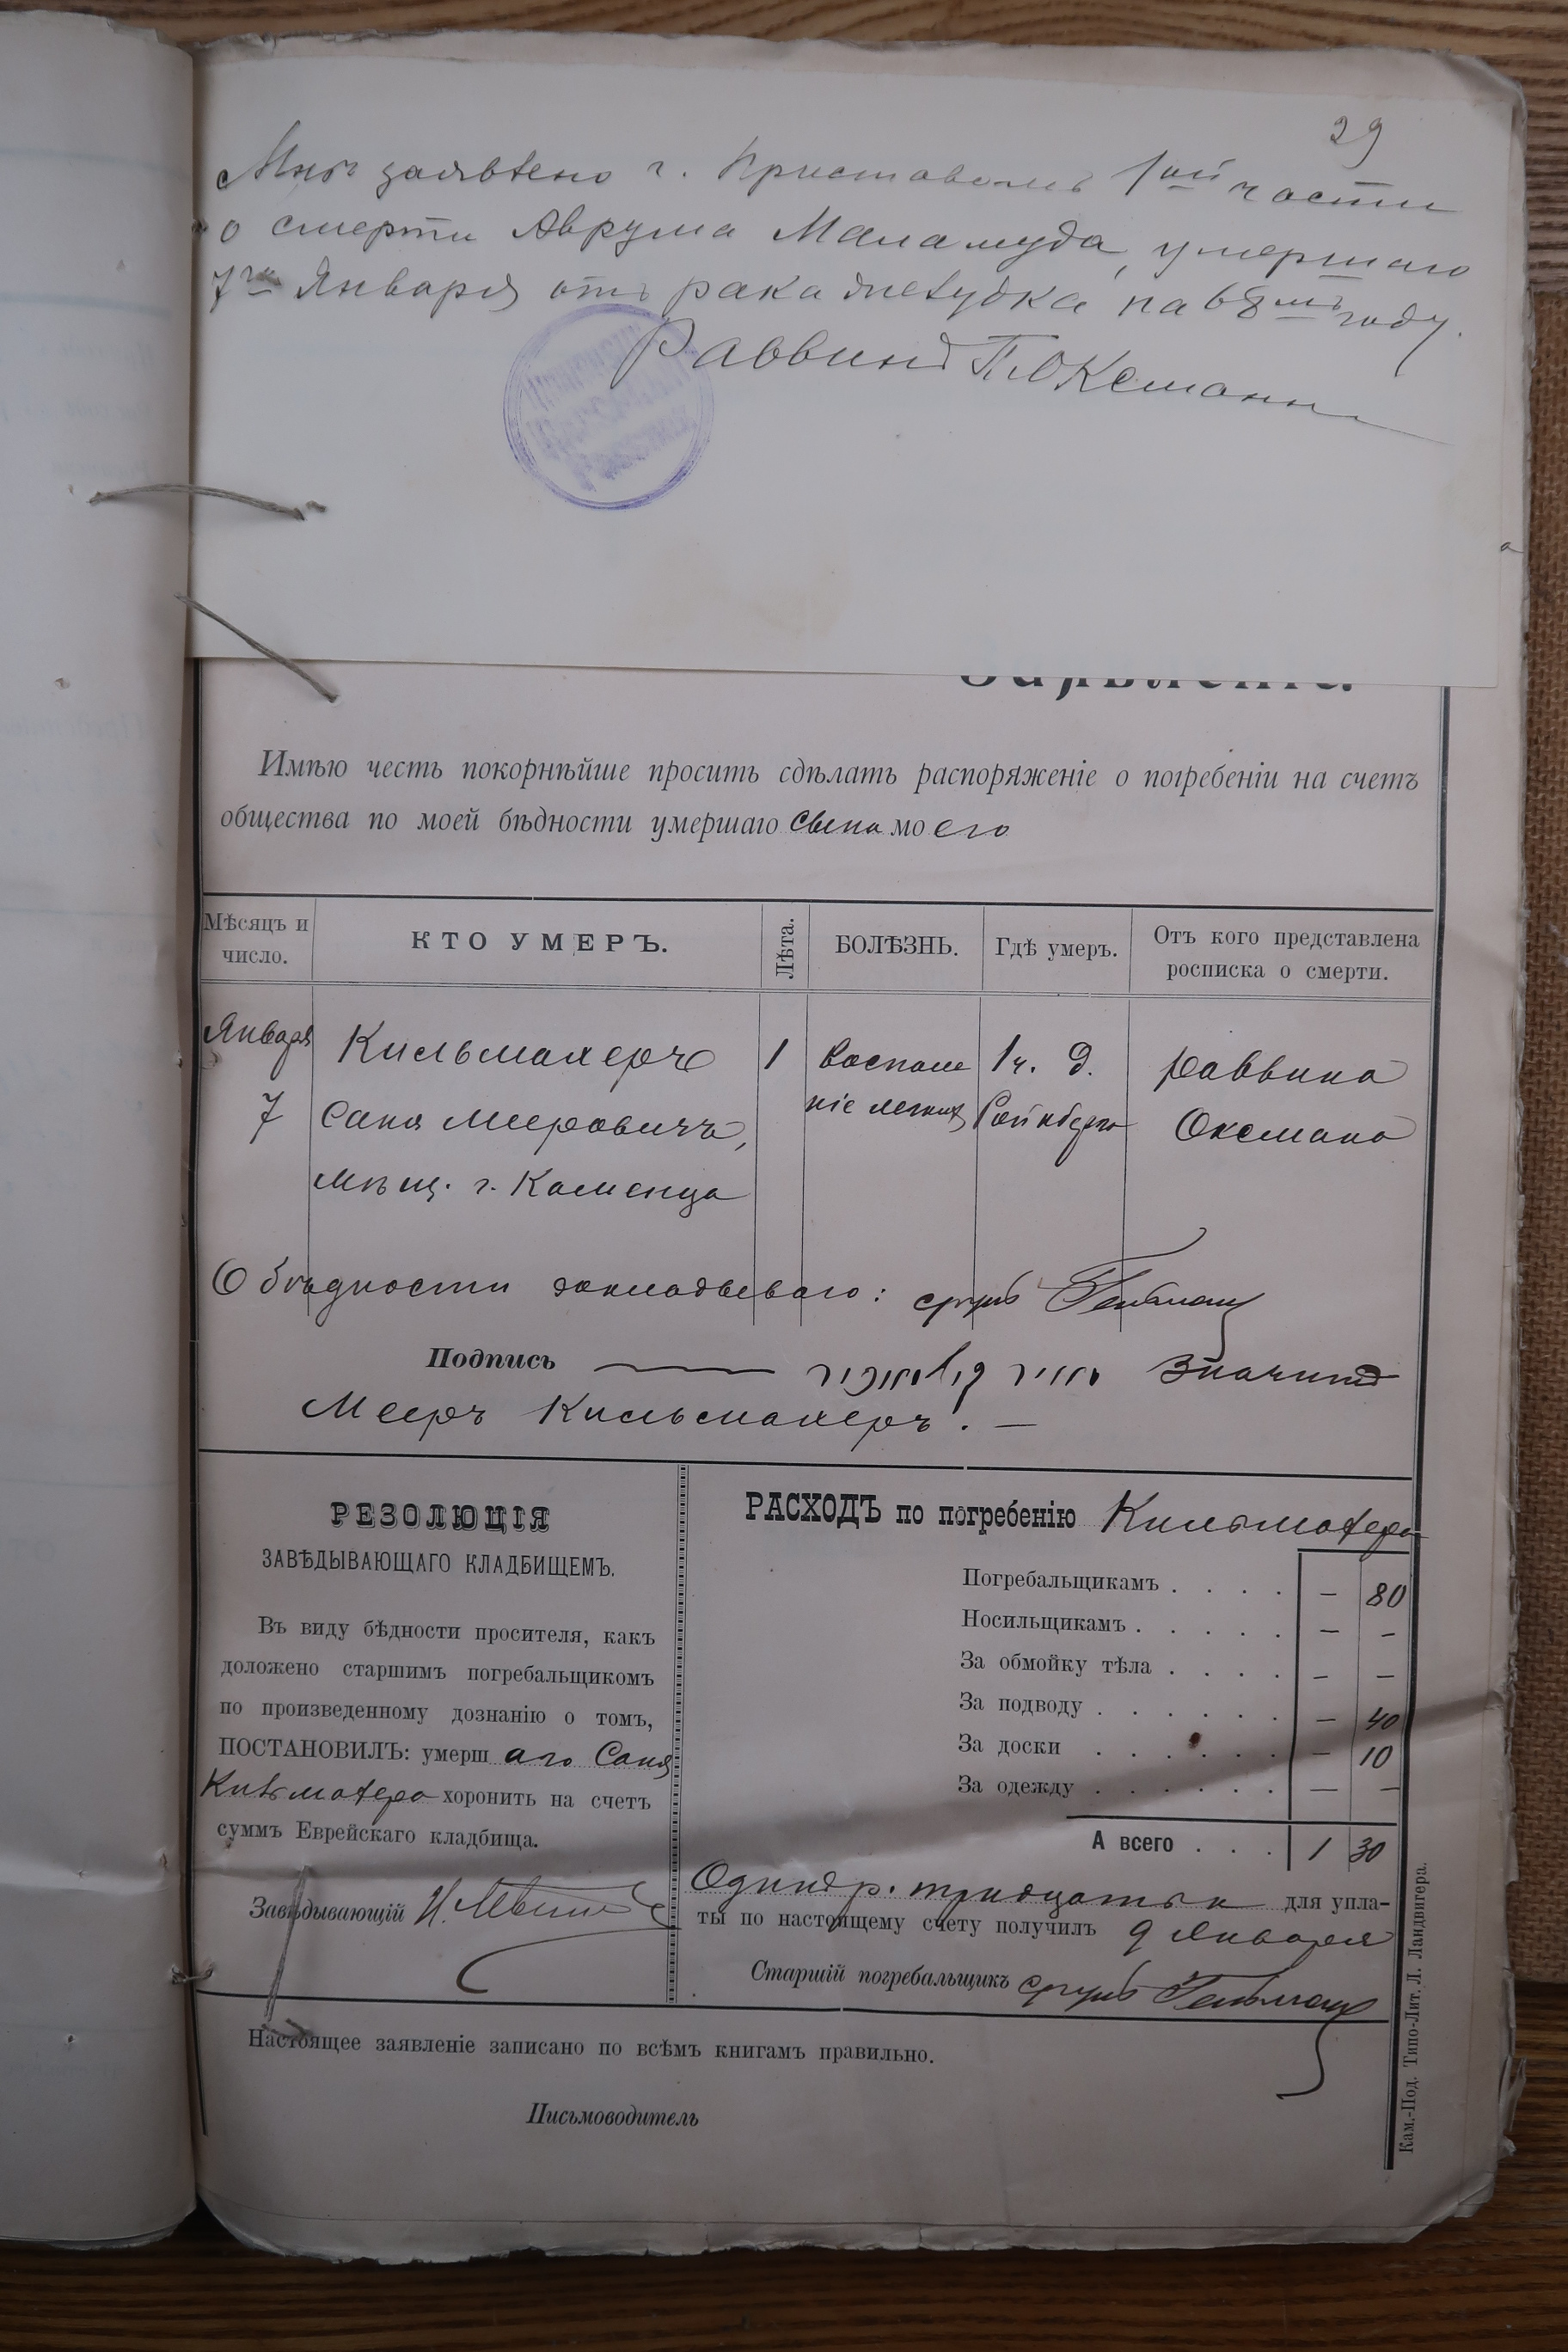 29
Мнѣ заявлено г. Приставомъ 1ой части
о смерти Аврума Маламуда, умершаго
7го Января отъ рака желудка на 68мъ году.
Раввинъ П. Оксманъ
Имѣю честь покорнѣйше просить сдѣлать распоряженіе о погребеніи на счетъ
общества по моей бѣдности умершаго сына моего
Мѣсяцъ и число.
КТО УМЕРЪ.
Лѣта.
БОЛѢЗНЬ.
Гдѣ умеръ.
Отъ кого представлена росписка о смерти.
Января
7
Кильмахеръ
Саня Мееровичъ,
мѣщ. г. Каменца
1
Воспале
ніе легкихъ
1 ч. д.
Раввина
Оксмана
О бѣдности докладываю:
Подпись מאיר קילמאכער Значитъ
Мееръ Кильмахеръ. —
РЕЗОЛЮЦІЯ
ЗАВѢДЫВАЮЩАГО КЛАДБИЩЕМЪ.
Въ виду бѣдности просителя, какъ
доложено старшимъ погребальщикомъ
по произведенному дознанію о томъ,
ПОСТАНОВИЛЪ: умершаго Саня
Кильмахера хоронить на счетъ
суммъ Еврейскаго кладбища.
Завѣдывающій
РАСХОДЪ по погребенію Кильмахера
Погребальщикамъ . . . . — 80
Носильщикамъ . . . . . — —
За обмойку тѣла . . . . — —
За подводу . . . . . . — 40
За доски . . . . . . — 10
За одежду . . . . . . — —
А всего . . . 1 30
Одинъ р. тридцать к для упла-
ты по настоящему счету получилъ 9 Января
Старшій погребальщикъ
Настоящее заявленіе записано по всѣмъ книгамъ правильно.
Письмоводитель
Кам.-Под. Типо-Лит. Л. Ландвигера.